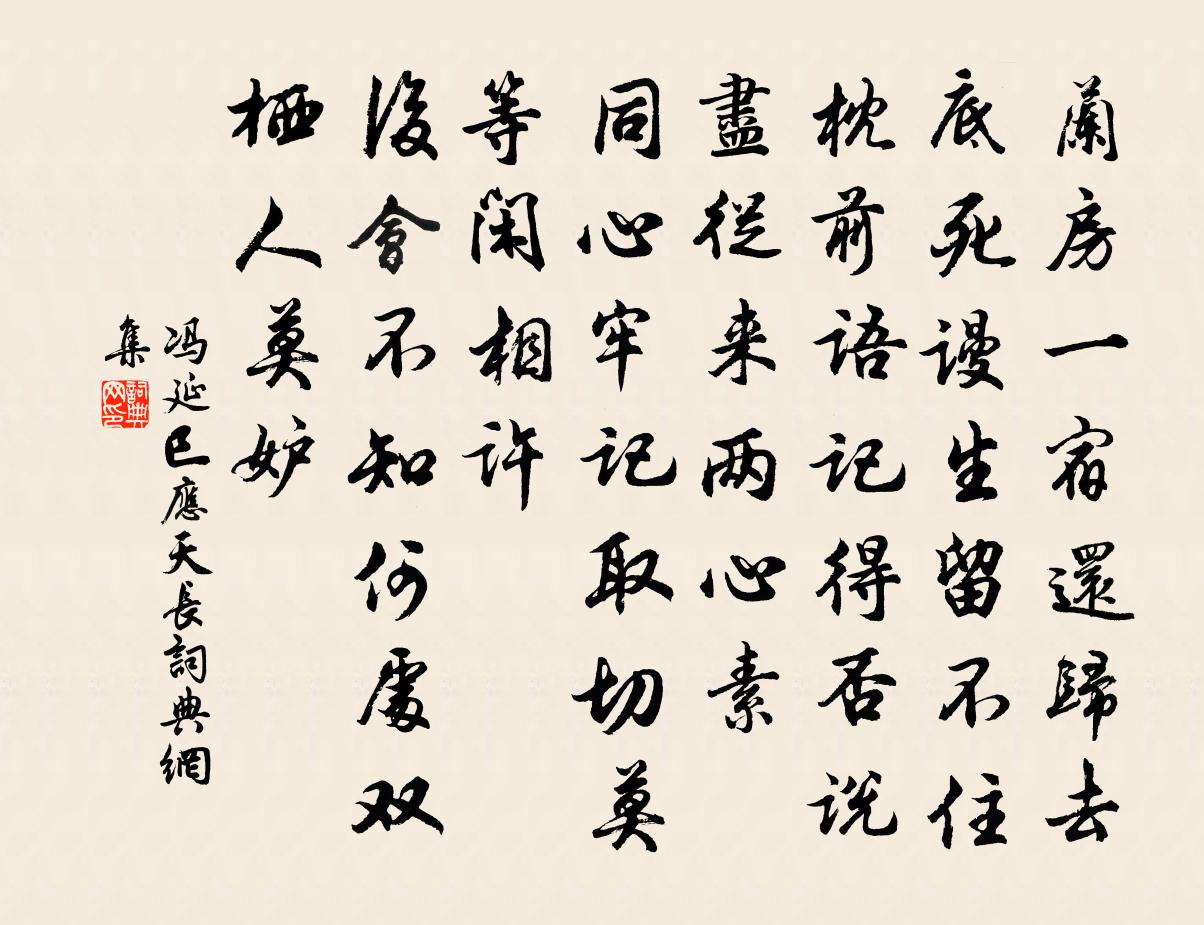 蘭房一宿還歸去
底死謾生留不住
枕前語記得否说
盡從来两心素
同心牢记取切莫
等閑相许
後會不知何處双
栖人莫妒
冯延巳應天長詞典網
集
詞典网印